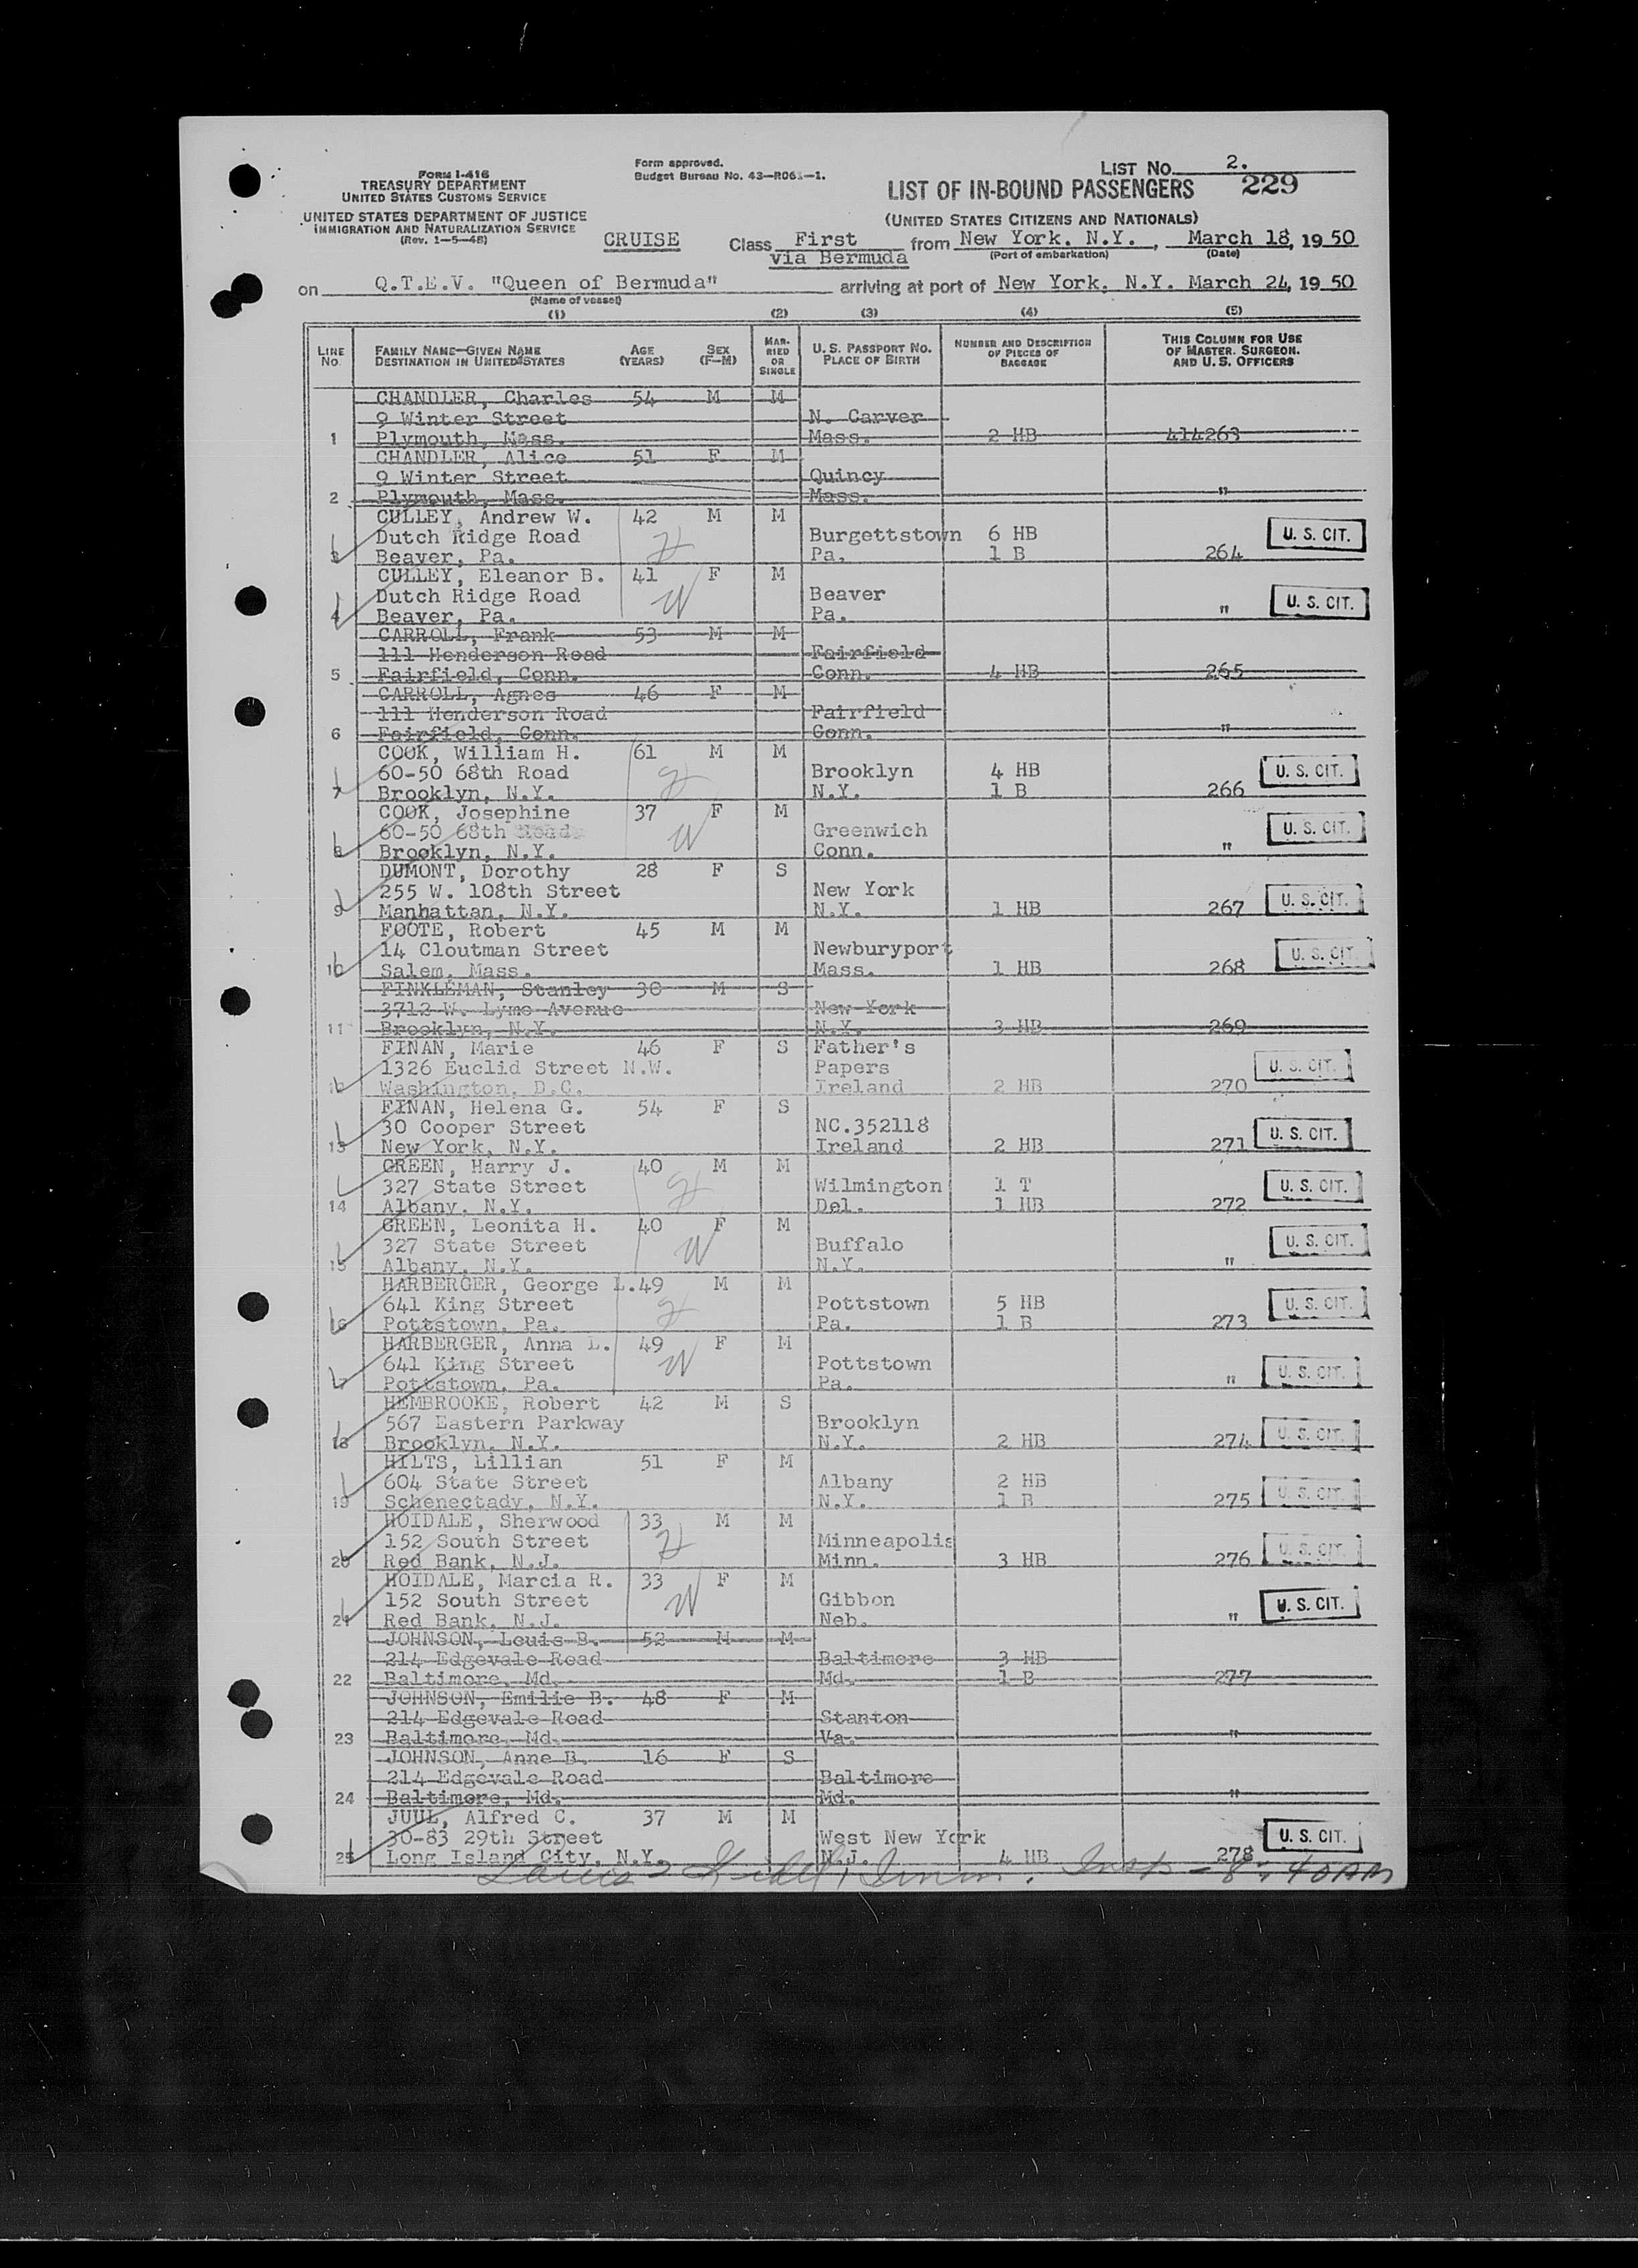 FORM I-416
TREASURY DEPARTMENT
UNITED STATES CUSTOMS SERVICE
UNITED STATES DEPARTMENT OF JUSTICE
IMMIGRATION AND NATURALIZATION SERVICE
(Rev. 1-5-48)
Form approved.
Budget Bureau No. 43-R061-1.
LIST NO. 2.
229
LIST OF IN-BOUND PASSENGERS
(UNITED STATES CITIZENS AND NATIONALS)
CRUISE Class First from New York. N.Y., March 18, 1950
via Bermuda (Port of embarkation) (Date)
on Q.T.E.V. "Queen of Bermuda" arriving at port of New York. N.Y. March 24, 1950
(Name of vessel)
(1) (2) (3) (4) (5)
LINE NO. FAMILY NAME—GIVEN NAME DESTINATION IN UNITED STATES AGE (YEARS) SEX (F-M) MARRIED OR SINGLE U. S. PASSPORT NO. PLACE OF BIRTH NUMBER AND DESCRIPTION OF PIECES OF BAGGAGE THIS COLUMN FOR USE OF MASTER. SURGEON. AND U. S. OFFICERS
CHANDLER, Charles 54 M M
9 Winter Street N. Carver
1 Plymouth, Mass. Mass. 2 HB 414263
CHANDLER, Alice 51 F M
9 Winter Street Quincy
2 Plymouth, Mass. Mass. "
CULLEY, Andrew W. 42 M M
Dutch Ridge Road Burgettstown 6 HB U. S. CIT.
3 Beaver, Pa. Pa. 1 B 264
CULLEY, Eleanor B. 41 F M
Dutch Ridge Road W Beaver U. S. CIT.
4 Beaver, Pa. Pa. "
CARROLL, Frank 53 M M
111 Henderson Road Fairfield
5 Fairfield, Conn. Conn. 4 HB 265
CARROLL, Agnes 46 F M
111 Henderson Road Fairfield
6 Fairfield, Conn. Conn. "
COOK, William H. 61 M M
60-50 68th Road Brooklyn 4 HB U. S. CIT.
7 Brooklyn, N.Y. N.Y. 1 B 266
COOK, Josephine 37 F M
60-50 68th Road W Greenwich U. S. CIT.
8 Brooklyn, N.Y. Conn. "
DUMONT, Dorothy 28 F S
255 W. 108th Street New York
9 Manhattan, N.Y. N.Y. 1 HB 267 U. S. CIT.
FOOTE, Robert 45 M M
14 Cloutman Street Newburyport
10 Salem, Mass. Mass. 1 HB 268 U. S. CIT.
FINKLEMAN, Stanley 30 M S
3712 W. Lyme Avenue New York
11 Brooklyn, N.Y. N.Y. 3 HB 269
FINAN, Marie 46 F S Father's
1326 Euclid Street N.W. Papers U. S. CIT.
12 Washington, D.C. Ireland 2 HB 270
FINAN, Helena G. 54 F S
30 Cooper Street NC.352118
13 New York, N.Y. Ireland 2 HB 271 U. S. CIT.
GREEN, Harry J. 40 M M
327 State Street Wilmington 1 T U. S. CIT.
14 Albany, N.Y. Del. 1 HB 272
GREEN, Leonita H. 40 F M
327 State Street W Buffalo U. S. CIT.
15 Albany, N.Y. N.Y. "
HARBERGER, George L. 49 M M
641 King Street Pottstown 5 HB U. S. CIT.
16 Pottstown, Pa. Pa. 1 B 273
HARBERGER, Anna L. 49 F M
641 King Street W Pottstown
17 Pottstown, Pa. Pa. " U. S. CIT.
HEMBROOKE, Robert 42 M S
567 Eastern Parkway Brooklyn
18 Brooklyn, N.Y. N.Y. 2 HB 274 U. S. CIT.
HILTS, Lillian 51 F M
604 State Street Albany 2 HB
19 Schenectady, N.Y. N.Y. 1 B 275 U. S. CIT.
HOIDALE, Sherwood 33 M M
152 South Street Minneapolis
20 Red Bank, N.J. Minn. 3 HB 276 U. S. CIT.
HOIDALE, Marcia R. 33 F M
152 South Street W Gibbon U. S. CIT.
21 Red Bank, N.J. Neb. "
JOHNSON, Louis B. 52 M M
214 Edgevale Road Baltimore 3 HB
22 Baltimore, Md. Md. 1 B 277
JOHNSON, Emilie B. 48 F M
214 Edgevale Road Stanton
23 Baltimore, Md. Va. "
JOHNSON, Anne B. 16 F S
214 Edgevale Road Baltimore
24 Baltimore, Md. Md. "
JUUL, Alfred C. 37 M M
30-83 29th Street West New York U. S. CIT.
25 Long Island City, N.Y. N.J. 4 HB 278
Insp - 8:40 AM